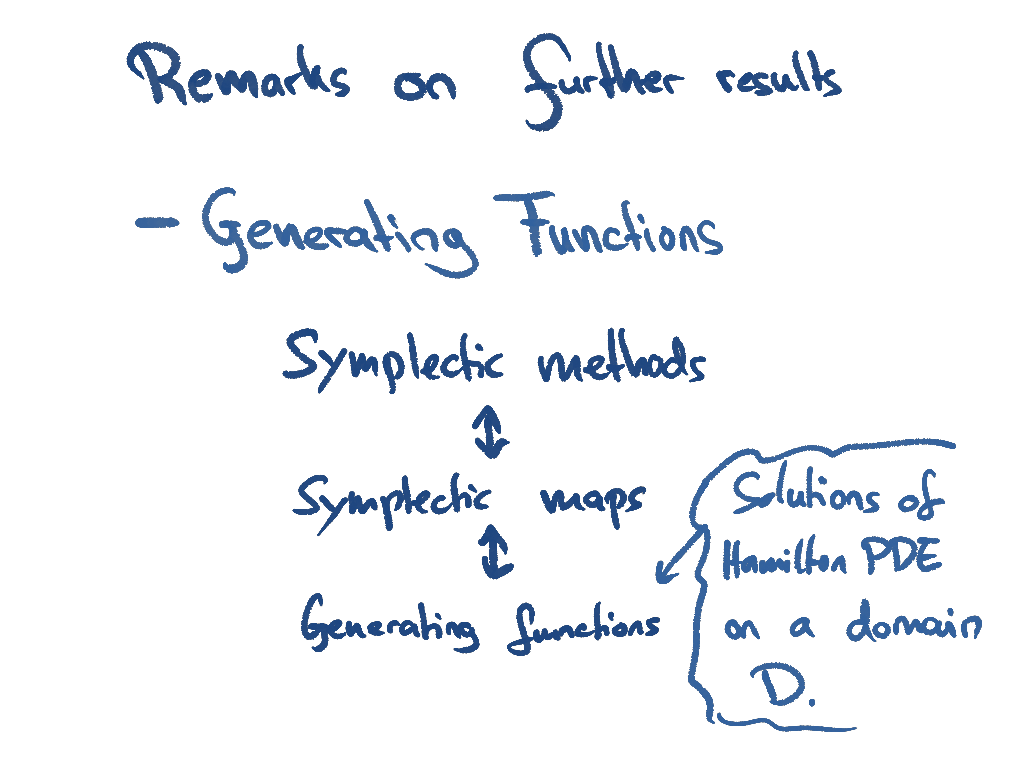 Remarks on further results
- Generating Functions
Symplectic methods
Symplectic maps
Generating functions
Solutions of
Hamilton PDE
on a domain
D.